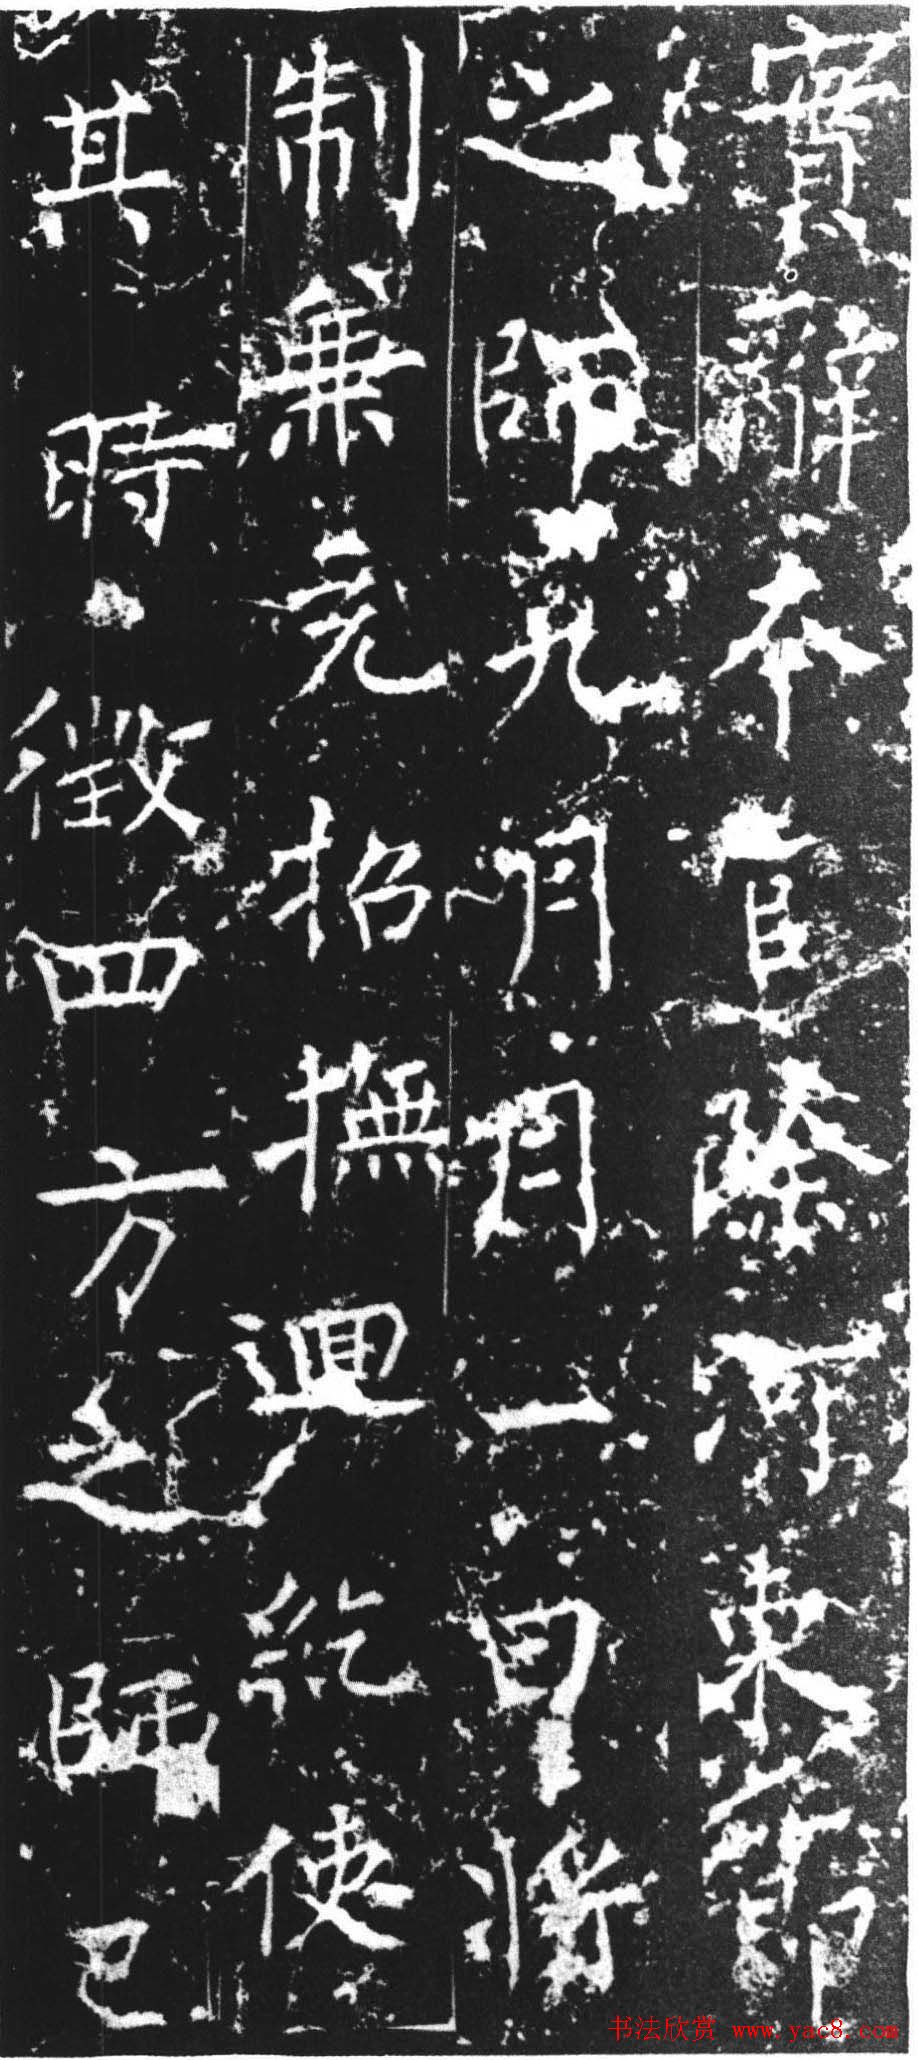 實辭本官除河東節
之師 明月一日將
制兼充招撫迴紇使
其時徵四方之師已
书法欣赏 www.yac8.com